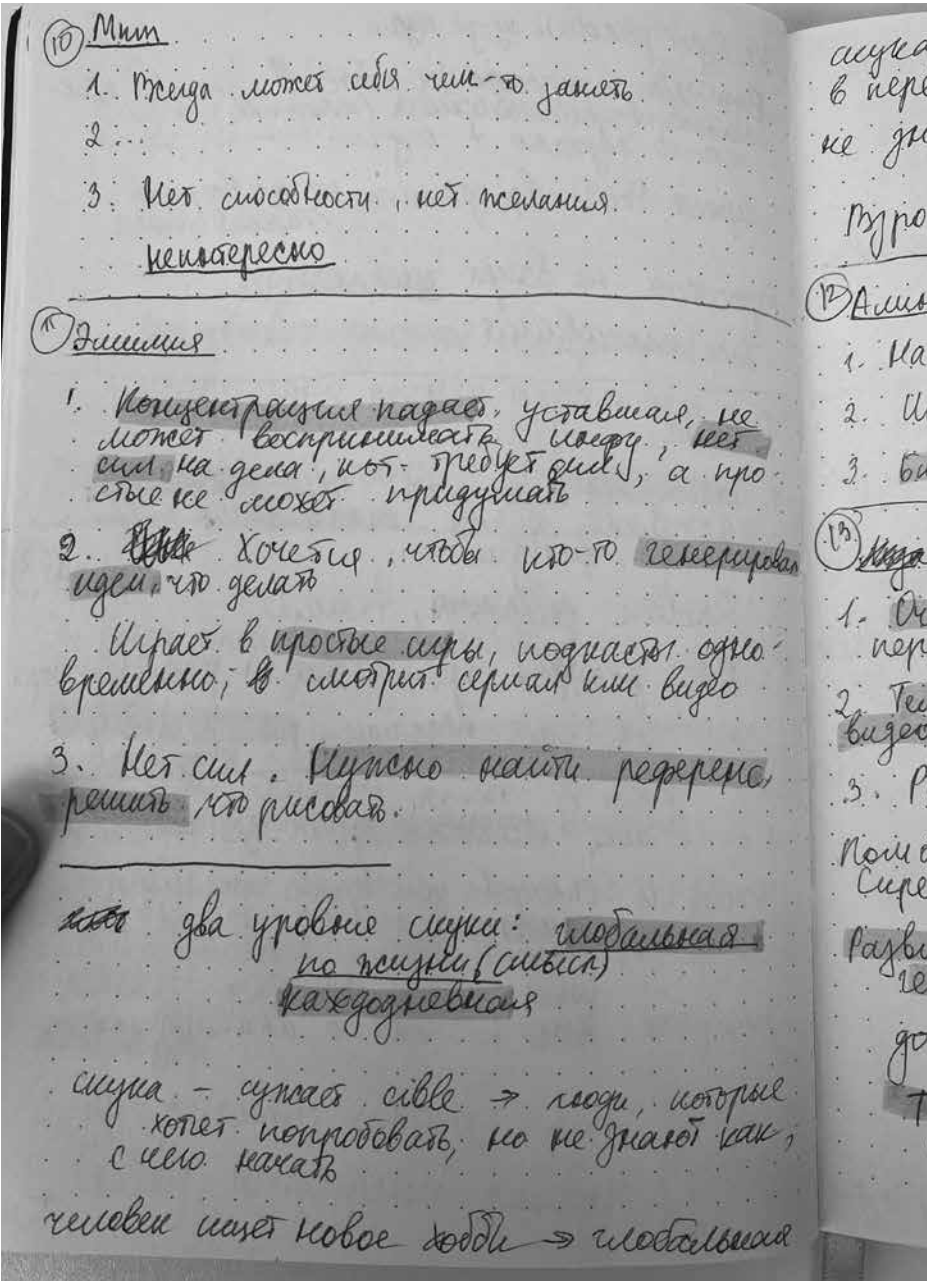 10 Мит
1. Всегда может себя чем-то занять
2 ...
3. Нет способности, нет желания.
неинтересно
11
1. Концентрация падает, уставшая, не
может воспринимать инфу, нет
сил на дела, кот. требует сил, а про-
стые не может придумать
2. Хочется, чтобы кто-то генерировал
идеи, что делать
Играет в простые игры, подкасты одно-
временно; смотрит сериал или видео
3. Нет сил. Нужно найти референс,
решить что рисовать.
два уровня скуки: глобальная
по жизни (смысл)
каждодневная
скука – сужает cible → люди, которые
хотет попробовать, но не знают как,
с чего начать
человек ищет новое хобби → глобальная
скука
в пере
не зн
Взро
12
1. На
2. И
3.
13
1. Оч
пер
2. Тел
видео
3. Р
Разви
до
Т